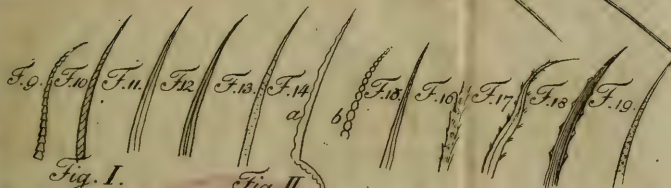 F.9. F.10 F.11. F.12 F.13. F.14 a b F.15 F.16 F.17 F.18 F.19.
Fig. I. Fig. II